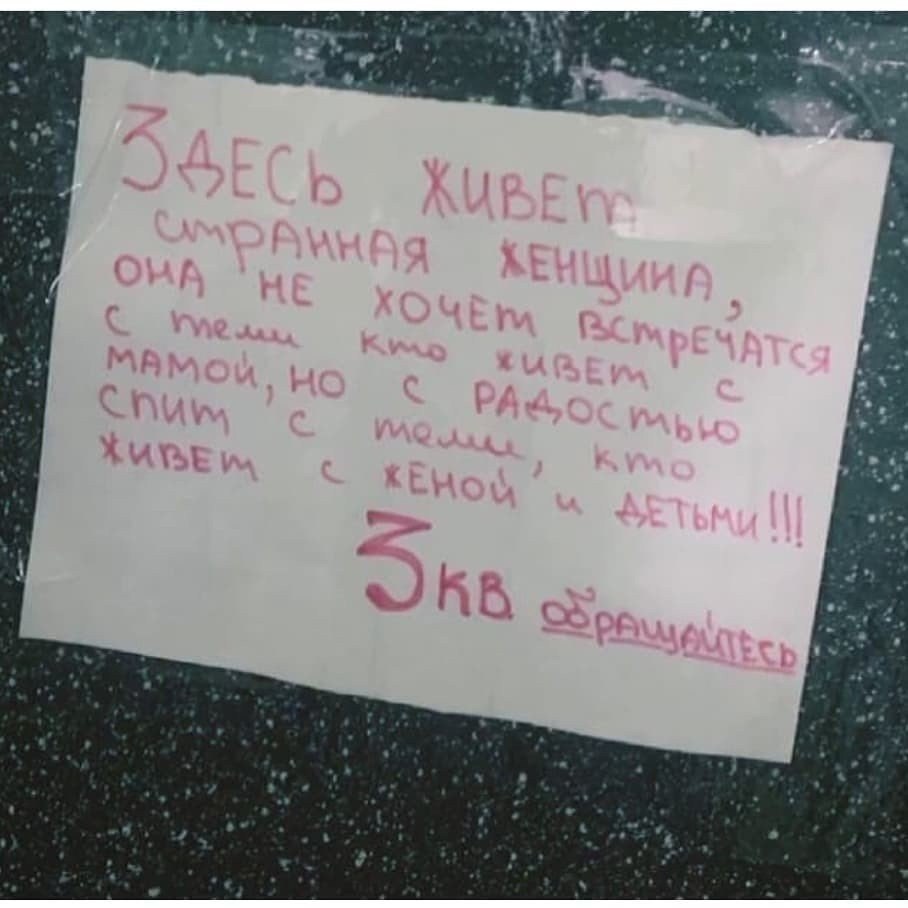 ЗДЕСЬ ЖИВЕТ
СТРАННАЯ ЖЕНЩИНА,
ОНА НЕ ХОЧЕТ ВСТРЕЧАТСЯ
С ТЕМИ КТО ЖИВЕТ С
МАМОЙ, НО С РАДОСТЬЮ
СПИТ С ТЕМИ, КТО
ЖИВЕТ С ЖЕНОЙ И ДЕТЬМИ!!!
3 КВ. ОБРАЩАЙТЕСЬ